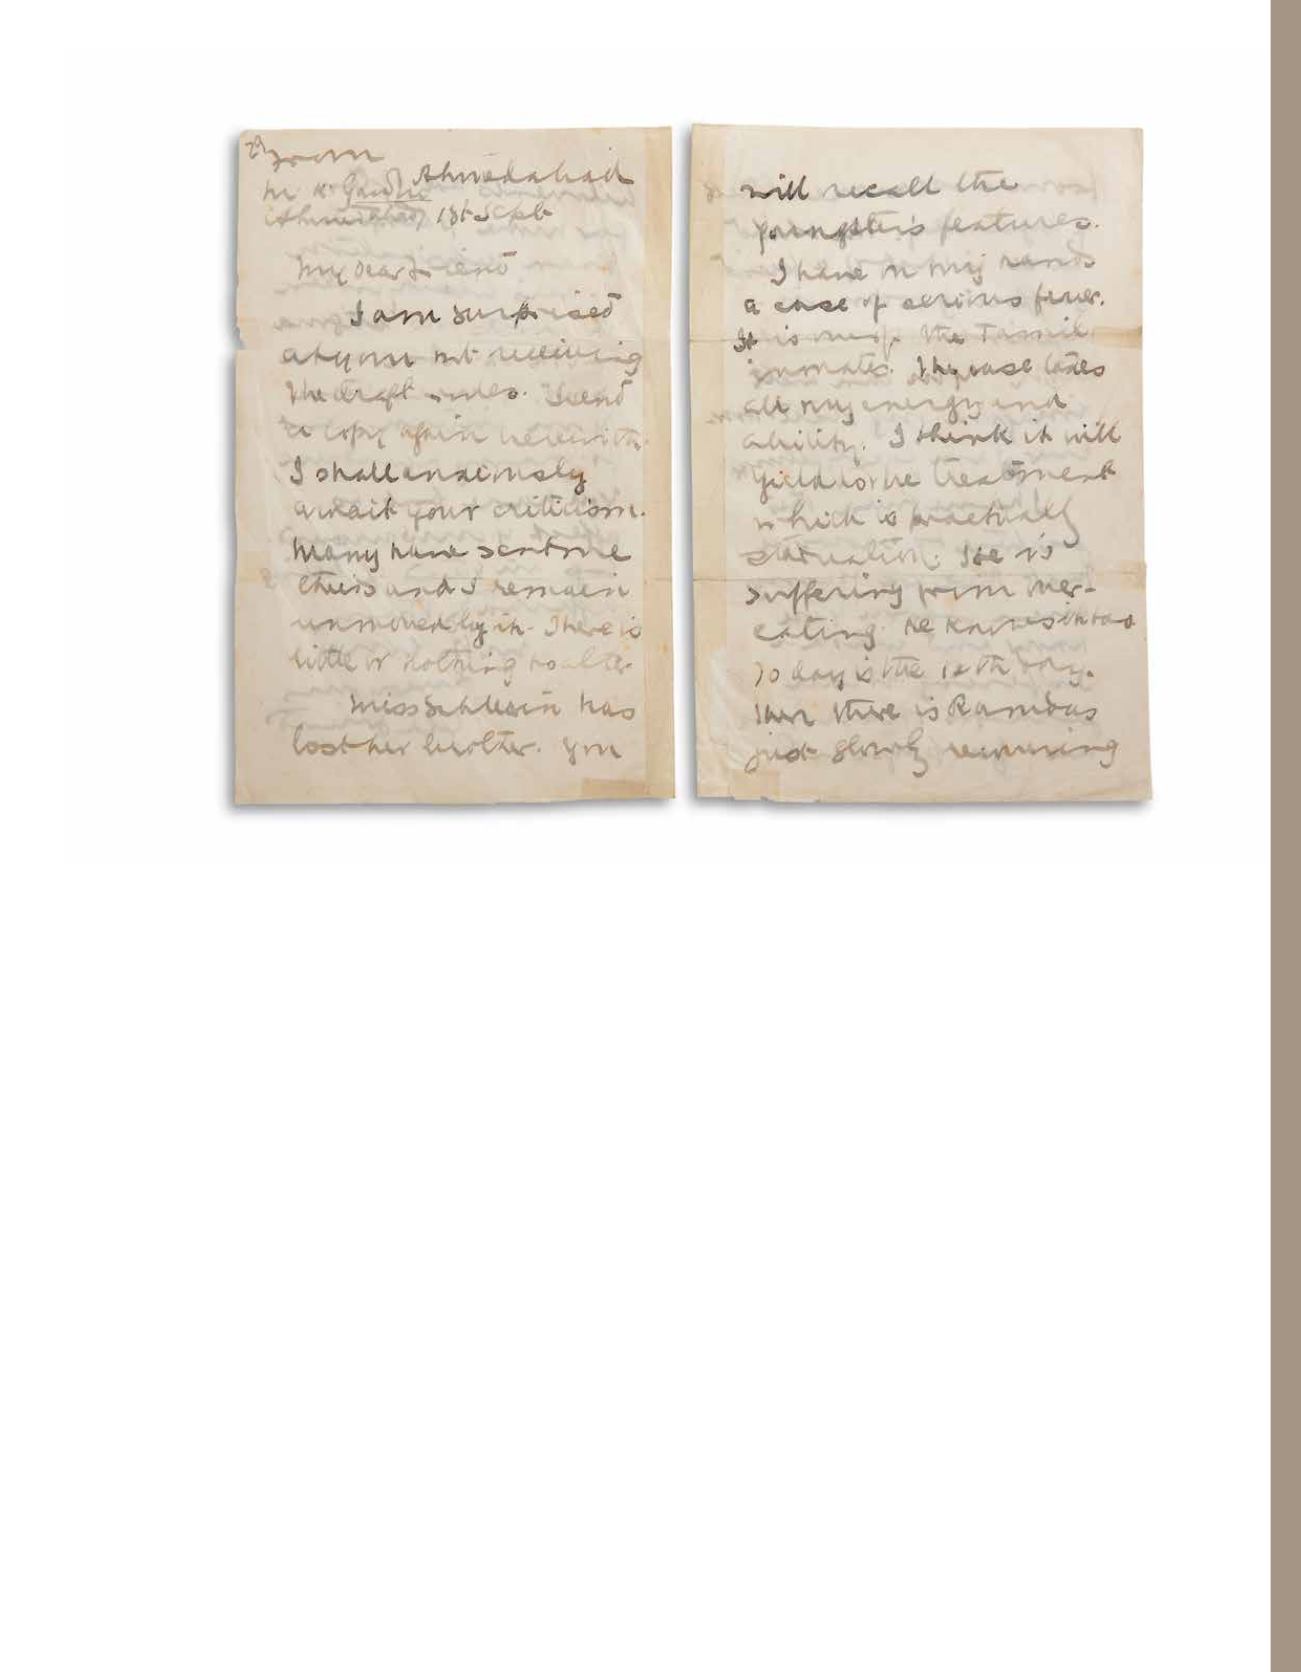 From
M K Gandhi
Ahmedabad
Ahmedabad
1st Sept
My dear friend
I am surprised
at your not receiving
the draft rules. I send
a copy again herewith.
I shall anxiously
await your criticism.
Many have sent me
theirs and I remain
unmoved by it. There is
little or nothing to alter.
Miss Schlesin has
lost her brother. You
will recall the
youngster's features.
I have on my hands
a case of serious fever.
It is one of the Tamil
inmates. The case takes
all my energy and
ability. I think it will
yield to the treatment
which is practically
starvation. He is
suffering from over-
eating. He knows it too
To day is the 12th day.
Then there is Ramdas
just slowly recovering